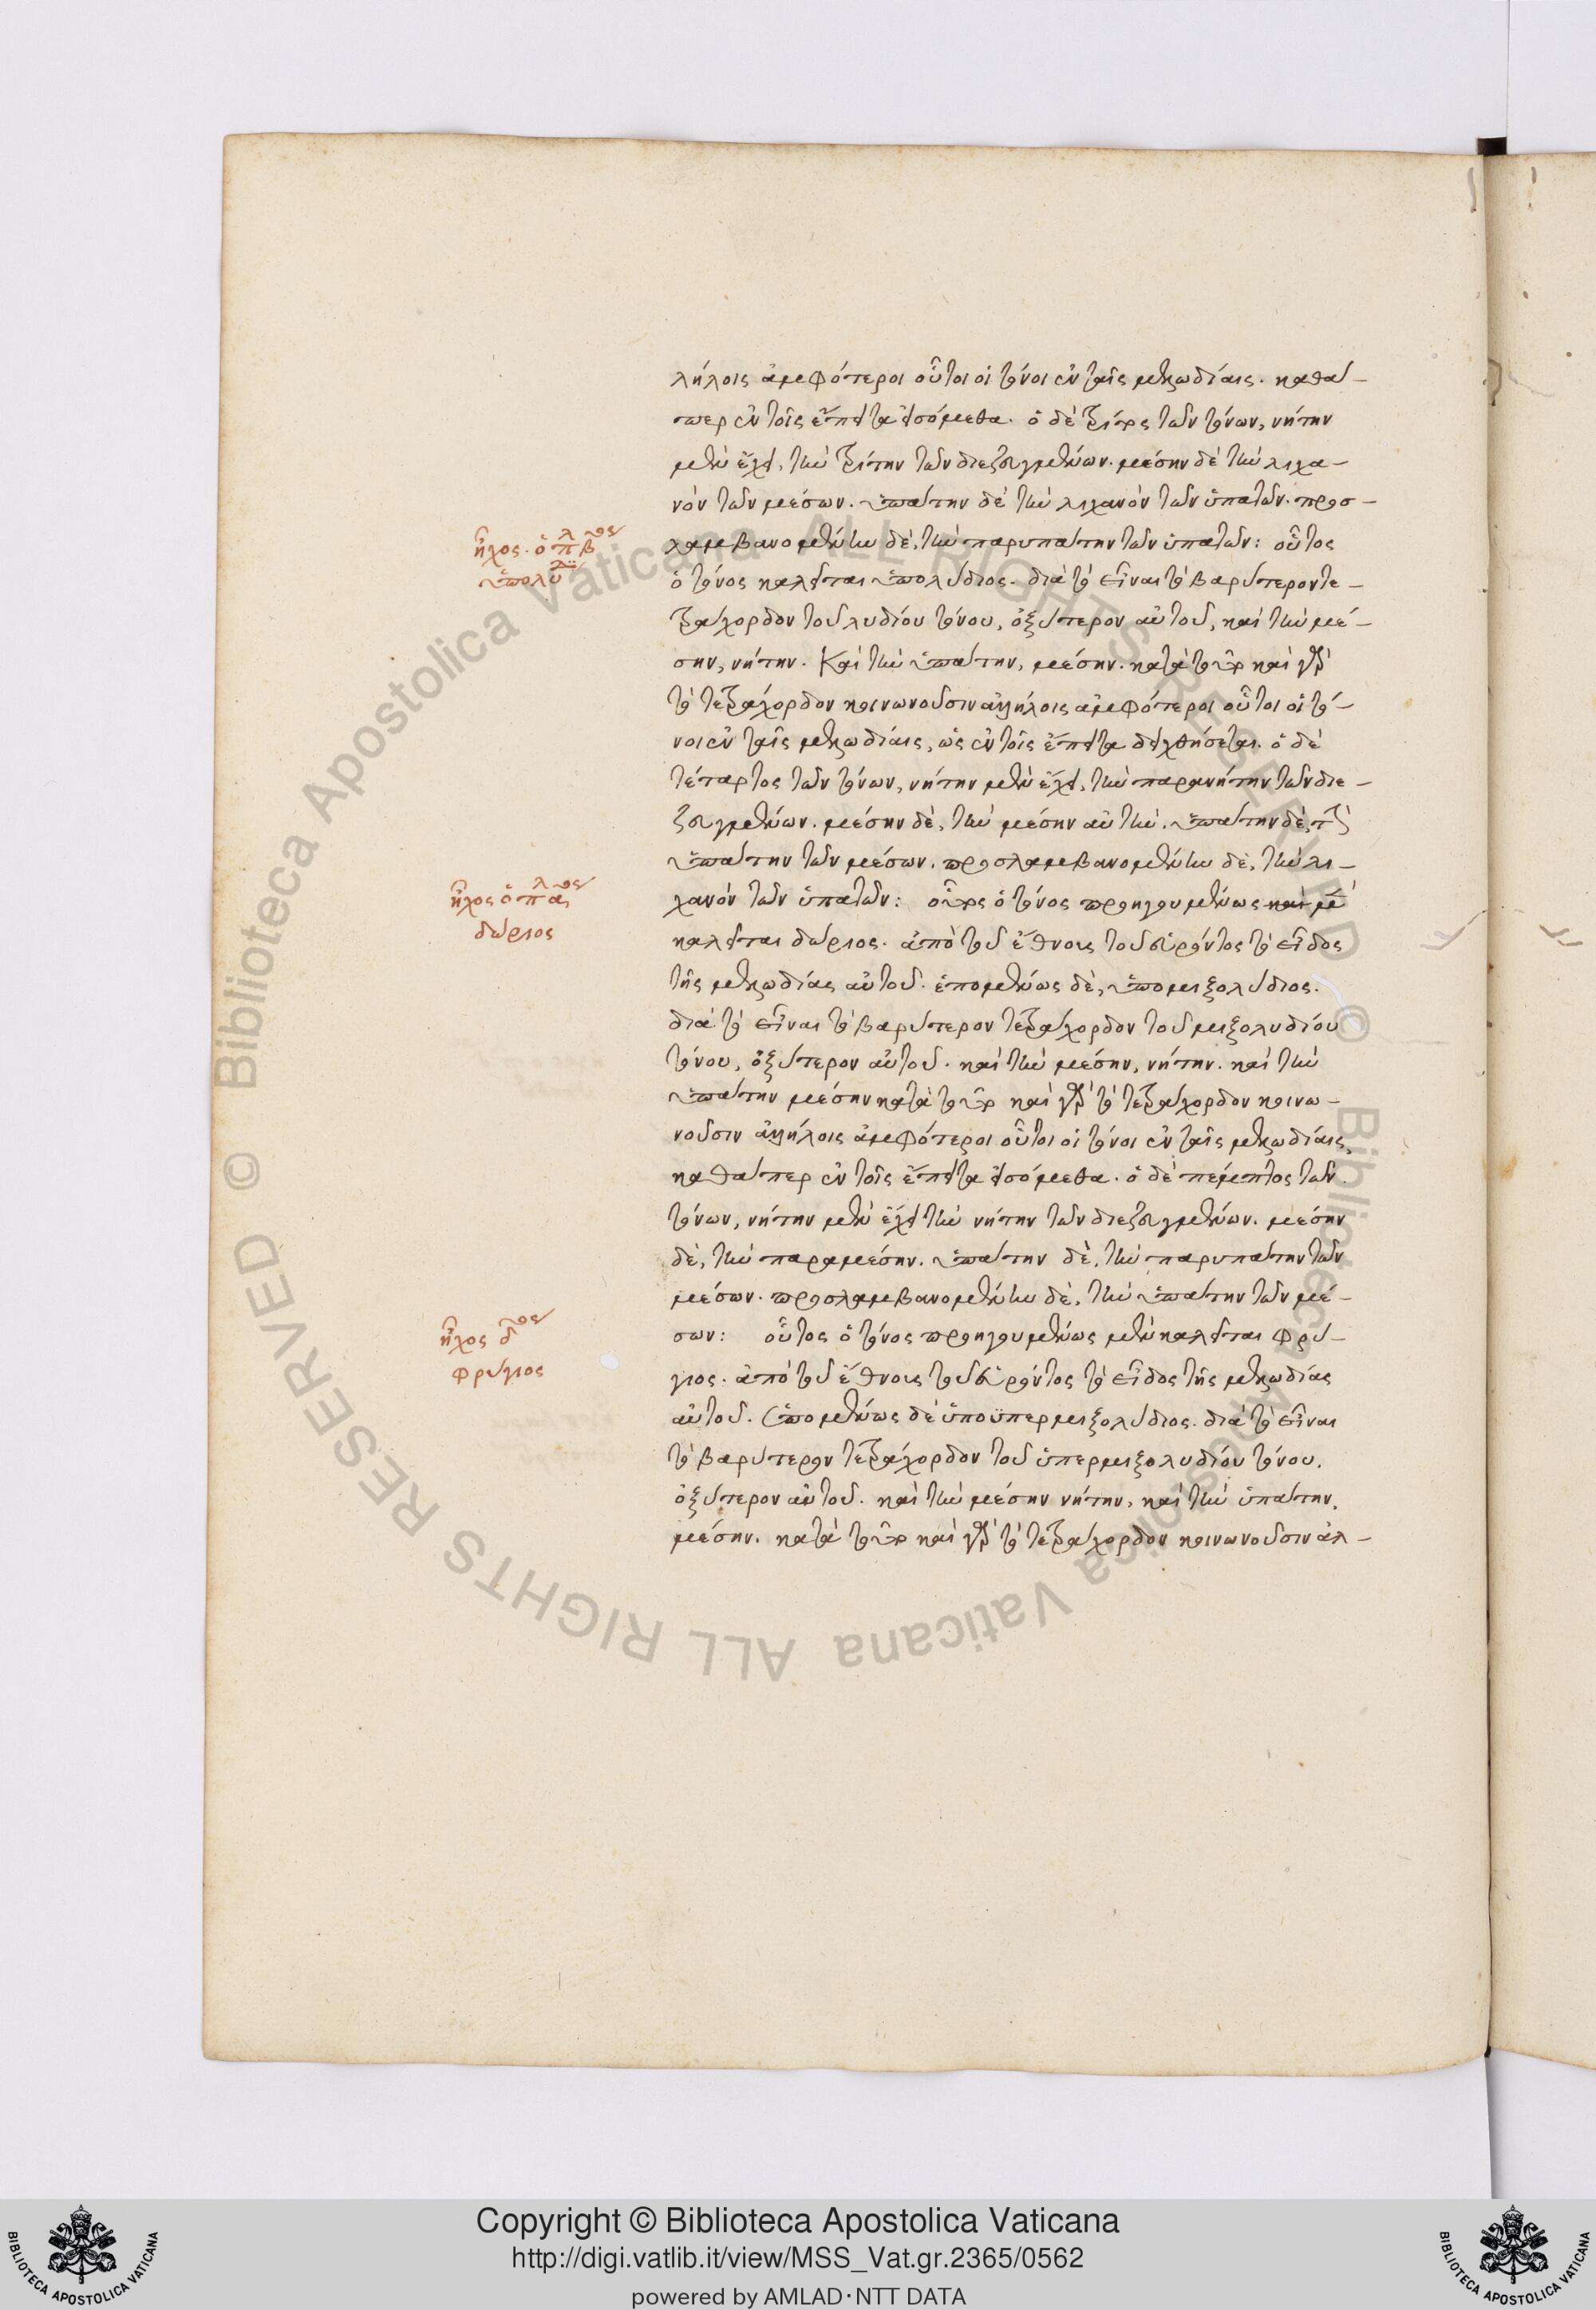 λήλοις ἀμφότεροι οὗτοι οἱ τόνοι ἐν ταῖς μελωδίαις. καθά-
περ ἐν τοῖς ἔπειτα εἰσόμεθα. ὁ δὲ τρίτος τῶν τόνων, νήτην
μὲν ἔχει, τὴν τρίτην τῶν διεζευγμένων. μέσην δὲ τὴν λιχα-
νὸν τῶν μέσων. ὑπάτην δὲ τὴν λιχανὸν τῶν ὑπατῶν. προσ-
λαμβανομένην δὲ, τὴν παρυπάτην τῶν ὑπατῶν: οὗτος
ἦχος. ὁ πλ β ος
ὑπολύ δι
ὁ τόνος καλεῖται ὑπολύδιος. διὰ τὸ εἶναι τὸ βαρύτερον τε-
τράχορδον τοῦ λυδίου τόνου, ὀξύτερον αὐτοῦ, καὶ τὴν μέ-
σην, νήτην. καὶ τὴν ὑπάτην, μέσην. κατὰ τοῦτο καὶ γὰρ
τὸ τετράχορδον κοινωνοῦσιν ἀλλήλοις ἀμφότεροι οὗτοι οἱ τό-
νοι ἐν ταῖς μελωδίαις, ὡς ἐν τοῖς ἔπειτα δειχθήσεται. ὁ δὲ
τέταρτος τῶν τόνων, νήτην μὲν ἔχει, τὴν παρανήτην τῶν διε-
ζευγμένων. μέσην δὲ, τὴν μέσην αὐτήν. ὑπάτην δὲ, τὴν
ὑπάτην τῶν μέσων. προσλαμβανομένην δὲ, τὴν λι-
χανὸν τῶν ὑπατῶν: οὗτος ὁ τόνος προηγουμένως καὶ μὲν
ἦχος ὁ πλ α ος
δώριος
καλεῖται δώριος. ἀπὸ τοῦ ἔθνους τοῦ εὑρόντος τὸ εἶδος
τῆς μελωδίας αὐτοῦ. ἑπομένως δὲ, ὑπομιξολύδιος.
διὰ τὸ εἶναι τὸ βαρύτερον τετράχορδον τοῦ μιξολυδίου
τόνου, ὀξύτερον αὐτοῦ. καὶ τὴν μέσην, νήτην. καὶ τὴν
ὑπάτην μέσην κατὰ τοῦτο καὶ γὰρ τὸ τετράχορδον κοινω-
νοῦσιν ἀλλήλοις ἀμφότεροι οὗτοι οἱ τόνοι ἐν ταῖς μελωδίαις,
καθάπερ ἐν τοῖς ἔπειτα εἰσόμεθα. ὁ δὲ πέμπτος τῶν
τόνων, νήτην μὲν ἔχει τὴν νήτην τῶν διεζευγμένων. μέσην
δὲ, τὴν παραμέσην. ὑπάτην δὲ, τὴν παρυπάτην τῶν
μέσων. προσλαμβανομένην δὲ, τὴν ὑπάτην τῶν μέ-
σων: οὗτος ὁ τόνος προηγουμένως μὲν καλεῖται φρύ-
ἦχος δ ος
φρύγιος
γιος. ἀπὸ τοῦ ἔθνους τοῦ εὑρόντος τὸ εἶδος τῆς μελωδίας
αὐτοῦ. ἑπομένως δὲ ὑποϋπερμιξολύδιος. διὰ τὸ εἶναι
τὸ βαρύτερον τετράχορδον τοῦ ὑπερμιξολυδίου τόνου.
ὀξύτερον αὐτοῦ. καὶ τὴν μέσην νήτην, καὶ τὴν ὑπάτην,
μέσην. κατὰ τοῦτο καὶ γὰρ τὸ τετράχορδον κοινωνοῦσιν ἀλ-
Copyright © Biblioteca Apostolica Vaticana
http://digi.vatlib.it/view/MSS_Vat.gr.2365/0562
powered by AMLAD·NTT DATA